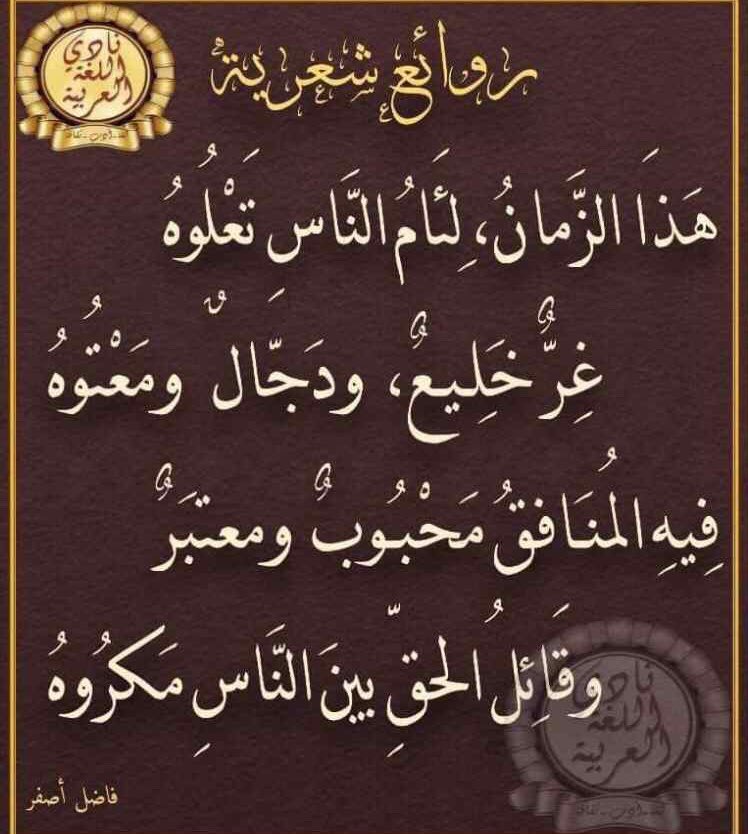 نادي
اللغة
العربية
روائع شعرية
هَذَا الزَّمانُ، لِئَامُ النَّاس تَعْلُوهُ
غِرٌّ خَلِيعٌ، ودَجَّالٌ ومَعْتُوهُ
فِيهِ المُنَافقُ مَحْبُوبٌ ومعتبَرٌ
وقَائِلُ الحقِّ بينَ النَّاسِ مَكرُوهُ
نادي
اللغة
العربية
فاضل أصفر